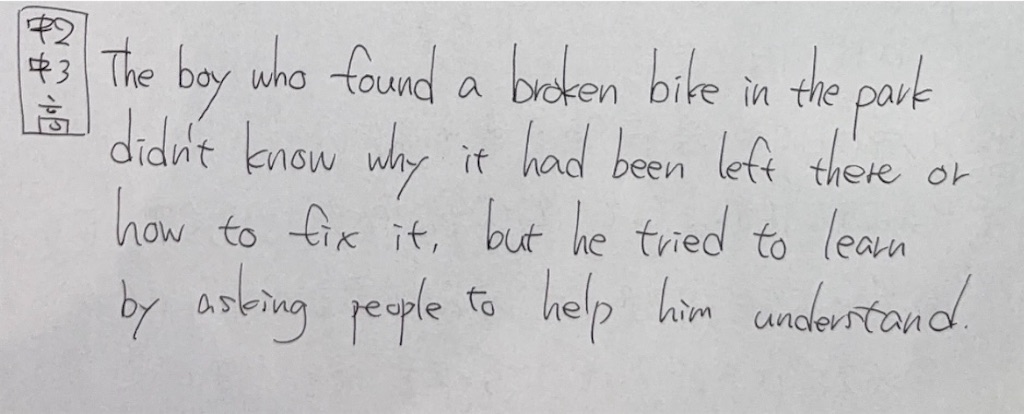 中2
中3
高
The boy who found a broken bike in the park
didn't know why it had been left there or
how to fix it, but he tried to learn
by asking people to help him understand.